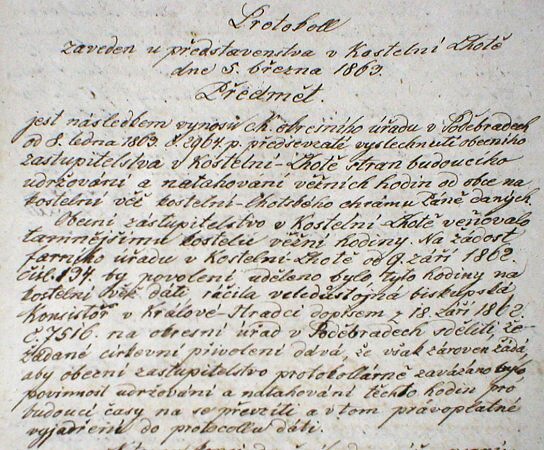 Protokoll
zaveden u představenstva v Kostelní Lhotě
dne 5. března 1863.
Předmět.
jest následkem vynosu ck. okresního úřadu v Poděbradech
od 8. ledna 1863. č. 2964. p. předsevzaté vyslechnutí obecního
zastupitelstva v Kostelní-Lhotě stran budoucího
udržování a natahování věžních hodin od obce na
kostelní věž kostelní-lhotského chrámu Páně daných.
Obecní zástupitelstvo v Kostelní Lhotě věnovalo
tamnějšímu kostelu věžní hodiny. Na žádost
farního úřadu v Kostelní-Lhotě od 9. září 1862.
čísl. 194. by povolení uděleno bylo tyto hodiny na
kostelní věž dáti, ráčila veledůstojná biskupská
Konsistoř v Králové-Hradci dopisem z 18. září 1862.
č. 7516. na okresní úřad v Poděbradech sděliti že
žádané církevní přivolení dává, že však zároveň žádá,
aby obecní zastupitelstvo protokollárně zavázáno bylo
povinnost udržování a natahování těchto hodin pro
budoucí časy na se převzíti a v tom právoplatné
vyjádření do protocollu dáti.